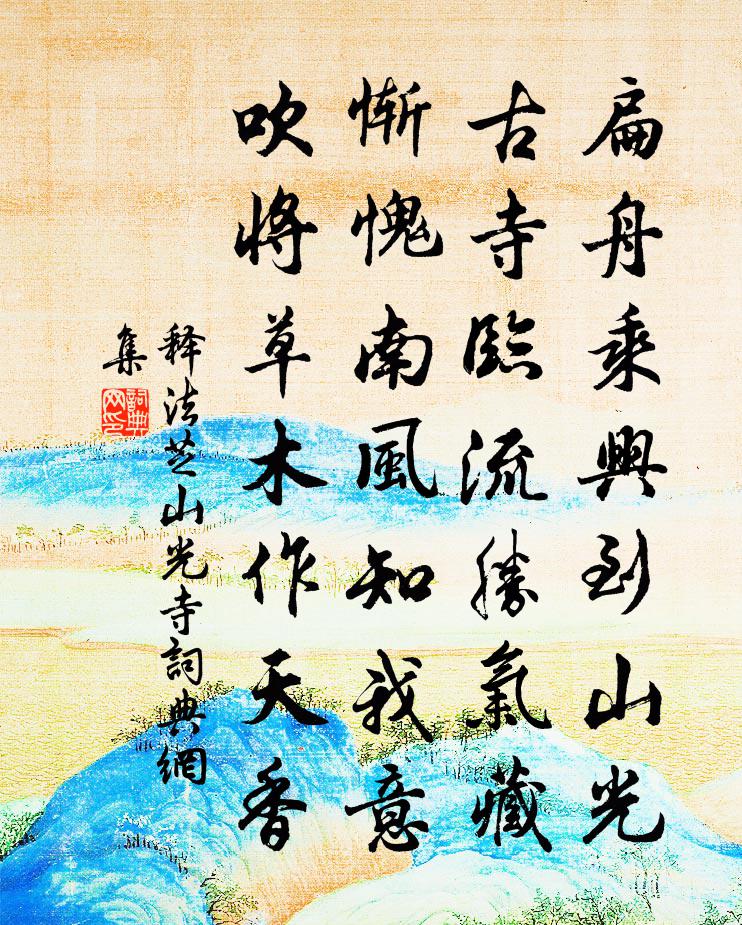 扁舟乘興到山光
古寺臨流勝氣藏
慚愧南風知我意
吹將草木作天香
释法芝山光寺詞典網
集
詞典
网印